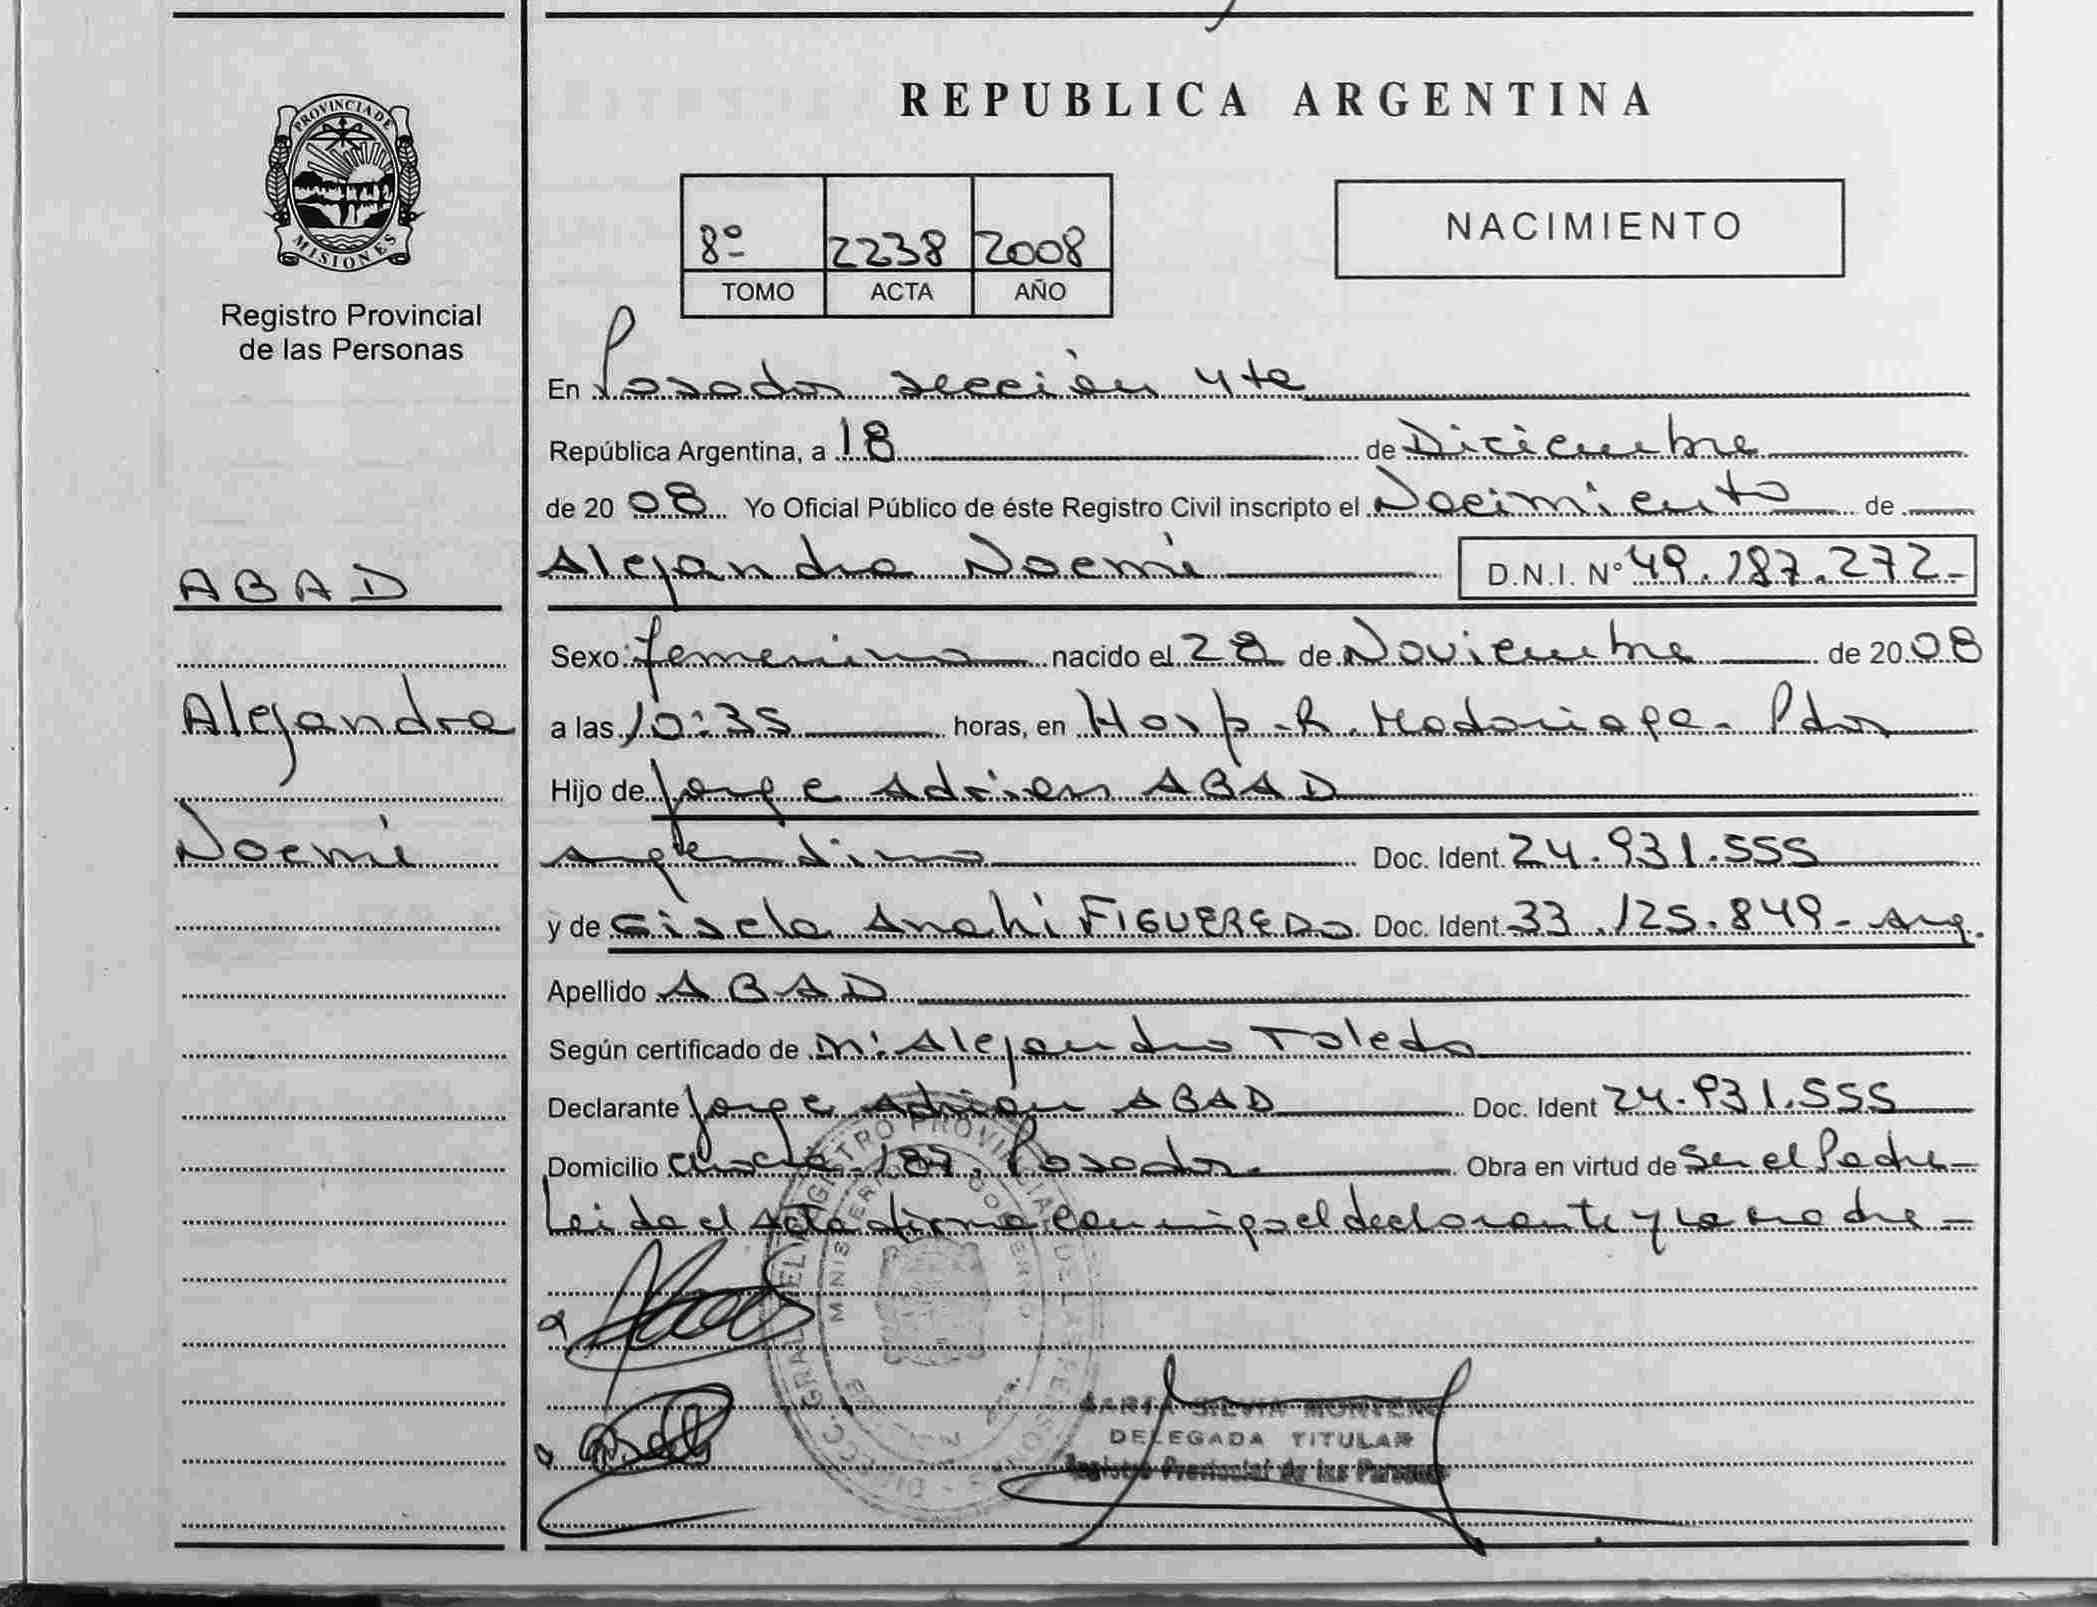 REPUBLICA ARGENTINA
PROVINCIA DE
MISIONES
Registro Provincial
de las Personas
8º 2238 2008
TOMO ACTA AÑO
NACIMIENTO
En Posadas sección 4ta
República Argentina, a 18 de Diciembre
de 20 08 Yo Oficial Público de éste Registro Civil inscripto el Nacimiento de
Alejandra Noemí D.N.I. Nº 49.187.272-
ABAD
Alejandra
Noemí
Sexo: femenino nacido el 28 de Noviembre de 20 08
a las 10:35 horas, en Hosp. R. Madariaga - Pdas
Hijo de Jorge Adrián ABAD
argentino Doc. Ident. 24.931.555
y de Gisela Anahi FIGUEREDO Doc. Ident. 33.125.849 - arg.
Apellido ABAD
Según certificado de M: Alejandro Toledo
Declarante Jorge Adrián ABAD Doc. Ident 24.931.555
Domicilio 187. Posadas. Obra en virtud de Ser el Padre -
Leida el Acta firma conmigo el declarante y la madre -
DIRECC. GRAL. DEL REGISTRO PROVINCIAL DE LAS PERSONAS
MINISTERIO DE GOBIERNO
SILVIA
DELEGADA TITULAR
Registro Provincial de las Personas